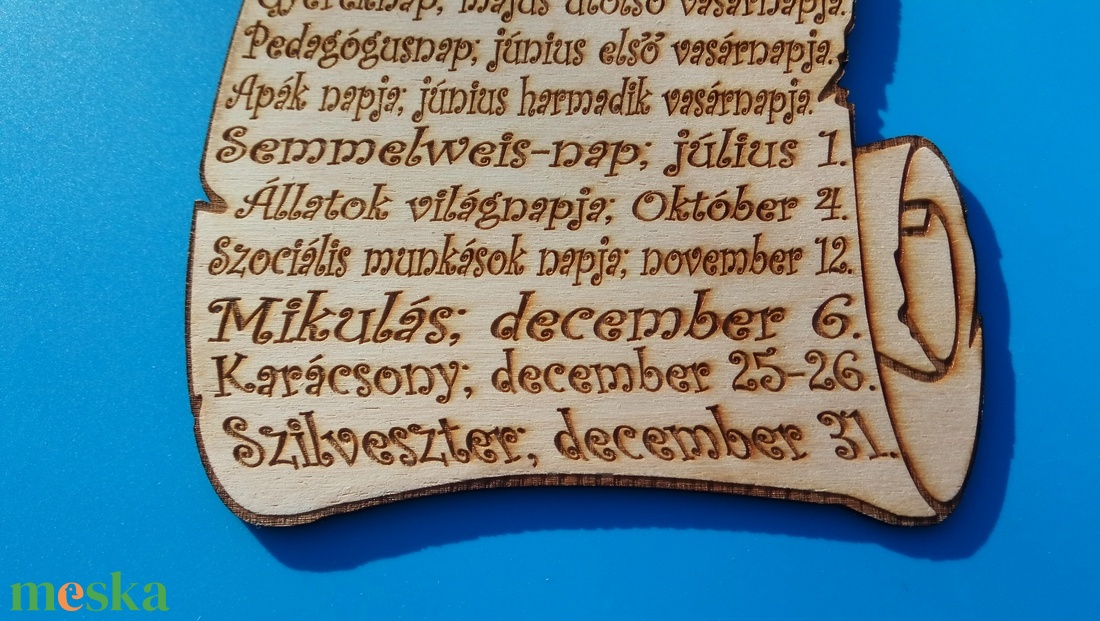 Gyereknap; május utolsó vasárnapja.
Pedagógusnap; június első vasárnapja.
Apák napja; június harmadik vasárnapja.
Semmelweis-nap; július 1.
Állatok világnapja; Október 4.
Szociális munkások napja; november 12.
Mikulás; december 6.
Karácsony; december 25-26.
Szilveszter; december 31.
meska